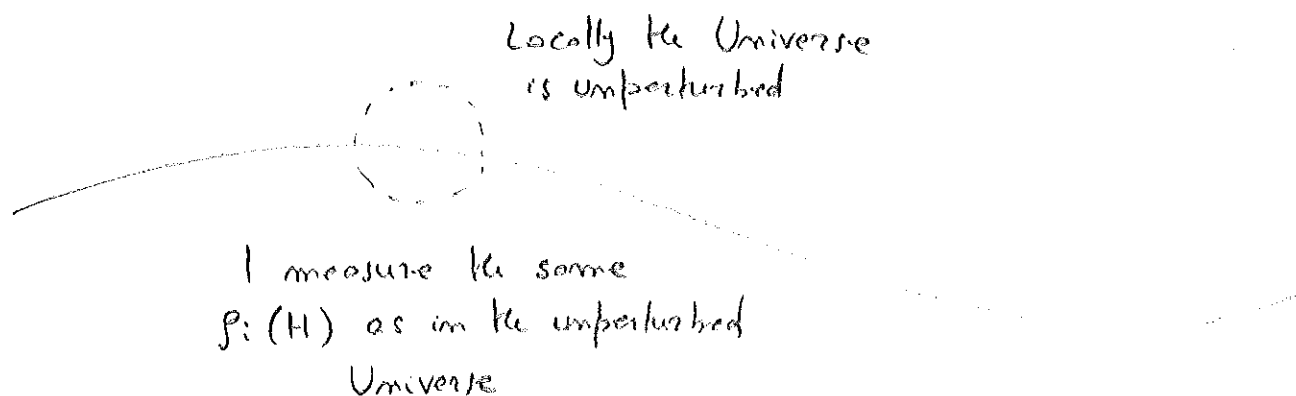 Locally the Universe
is unperturbed
I measure the same
ρi (H) as in the unperturbed
Universe